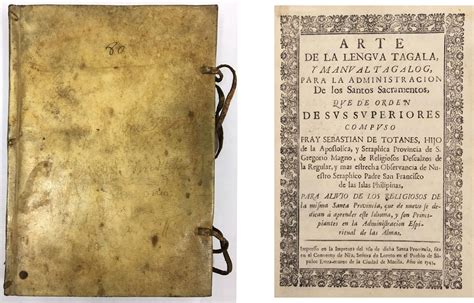 ARTE
DE LA LENGVA TAGALA,
Y MANVAL TAGALOG,
PARA LA ADMINISTRACION
De los Santos Sacramentos,
QVE DE ORDEN
DE SVS SVPERIORES
COMPVSO
FRAY SEBASTIAN DE TOTANES, HIJO
de la Apostolica, y Seraphica Provincia de S.
Gregorio Magno, de Religiosos Descalzos de
la Regular, y mas estrecha Observancia de Nu-
estro Seraphico Padre San Francisco
de las Islas Philipinas.
PARA ALIVIO DE LOS RELIGIOSOS DE
la misma Santa Provincia, que de nuevo se de-
dican à aprender este Idioma, y son Prin-
cipiantes en la Administracion Espi-
ritual de las Almas.
Impresso en la Imprenta del uso de dicha Santa Provincia, sita
en el Convento de Nra. Señora de Loreto en el Pueblo de
Sampaloc Extra-muros de la Ciudad de Manila. Año de 1745.